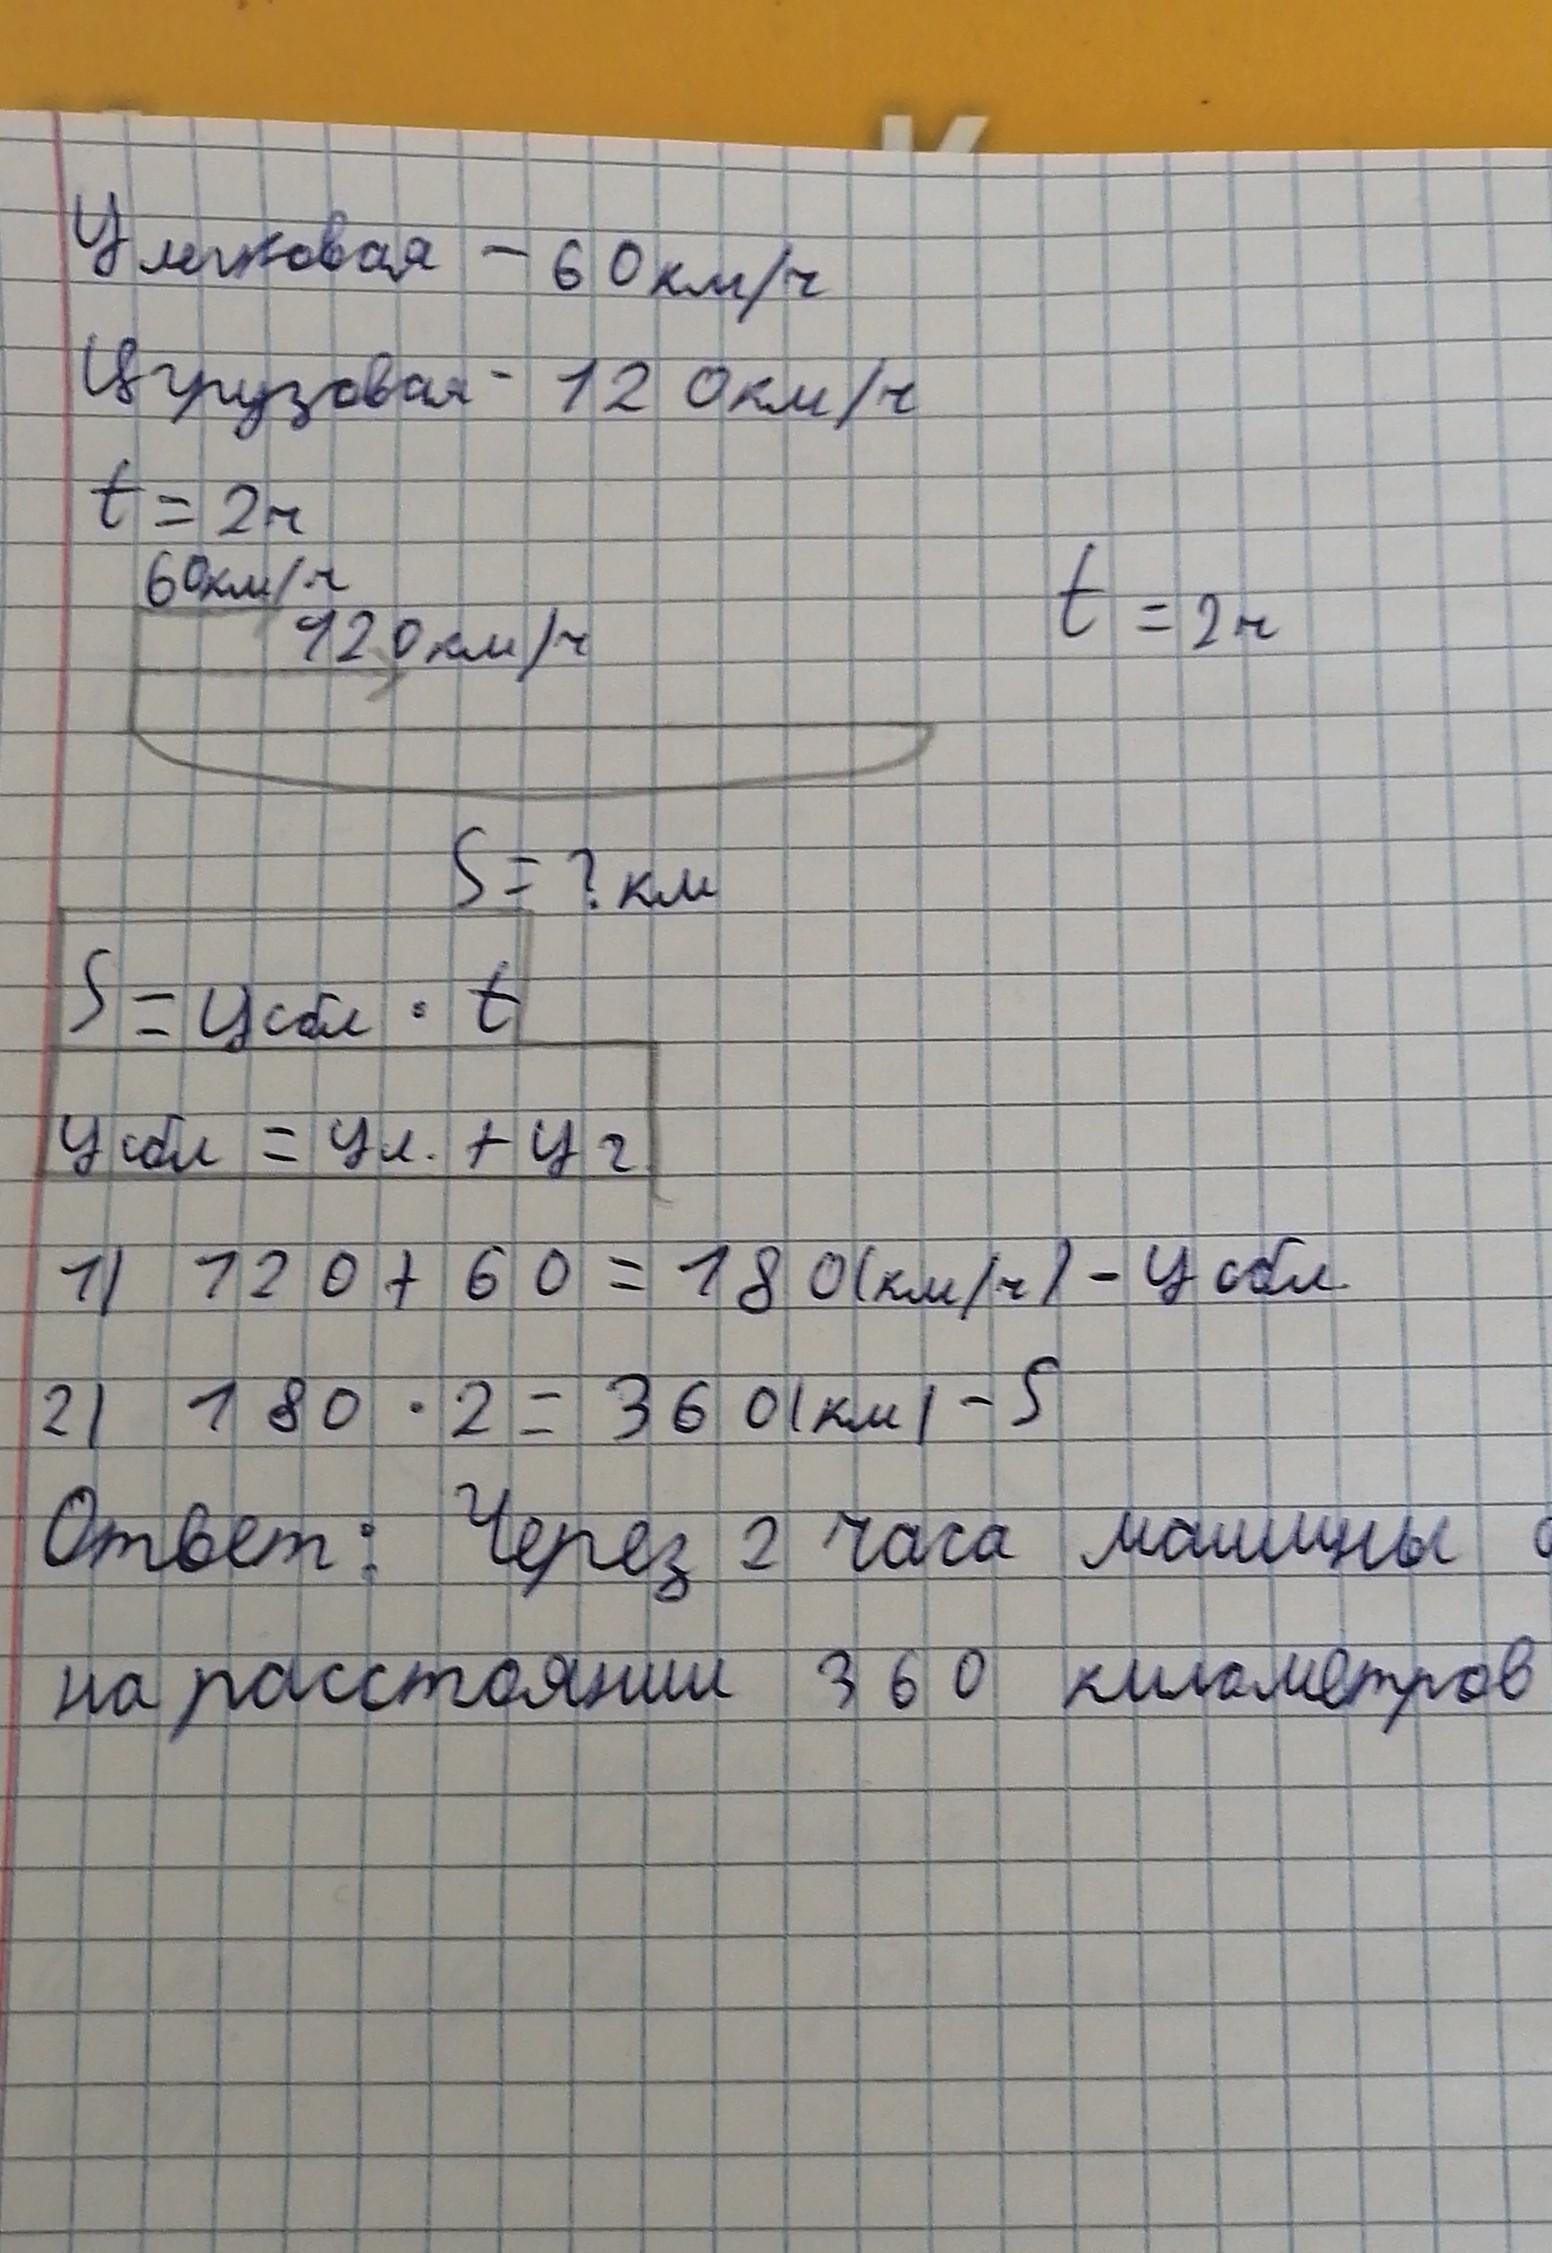 К
V легковая - 60км/ч
V грузовая - 120км/ч
t = 2ч
60км/ч
120км/ч
t = 2ч
S = ? км
S = V сбл · t
V сбл = V л. + V г.
1) 120 + 60 = 180(км/ч) - V сбл.
2) 180 · 2 = 360(км) - S
Ответ: Через 2 часа машины
на расстоянии 360 километров